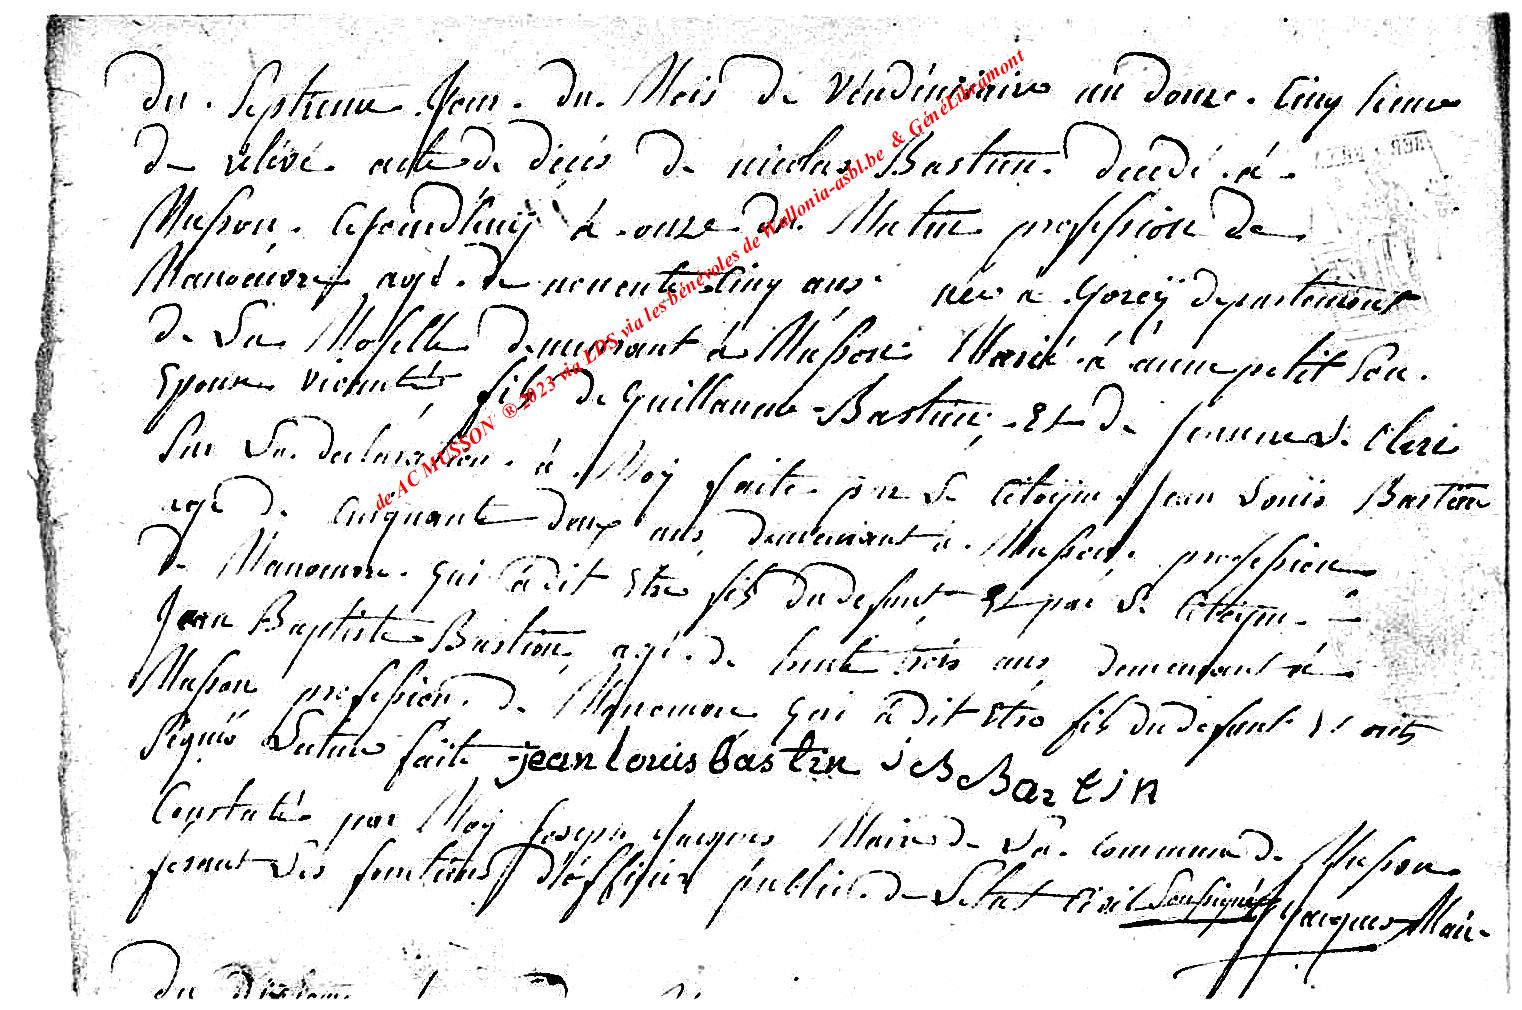 du Septieme Jour du Mois de Vendémiaire an douze. Cinq heure
de relévé acte de décés de nicolas Bastien. decedé à
Musson. à onze du Matin profession de
Manoeuvre agé de nonente Cinq ans née a Gorcÿ departement
de La Moselle demeurant à Musson Marié à anne petit Son
Epouse fils de Guillaume Bastien, Et de Jeanne
Sur La declaration à Moy faite par Le Citoÿen Jean Louis Bastien
agé de Cinquante deux ans demeurant à Musson profession
de Manoeuvre qui à dit Etre fils du defunt Et par Le Citoÿen
Jean Baptiste Bastien agé de trois ans demeurant à
Musson profession de Manoeuvre qui à dit Etre fils du defunt Et onts
Signés Lecture faite jean louis bastin J B Bastin
Constaté par Moy Joseph Jacques Maire de La Commune de Musson
fesant Les fonctions d'officier public de Letat Civil Soussigné Jacques Maire
du
de AC MUSSON ® 2023 via LDS via les bénévoles de Wallonia-asbl.be & GénéLibramont